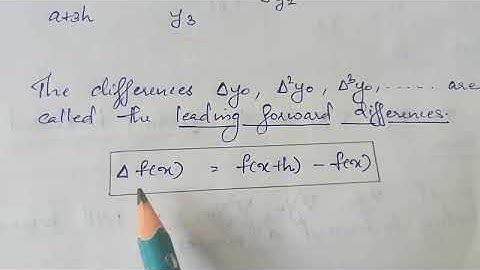 Δy₂
a+3h y₃
The differences Δy₀, Δ²y₀, Δ³y₀, ...... are
called the leading forward differences.
Δ f(x) = f(x+h) - f(x)